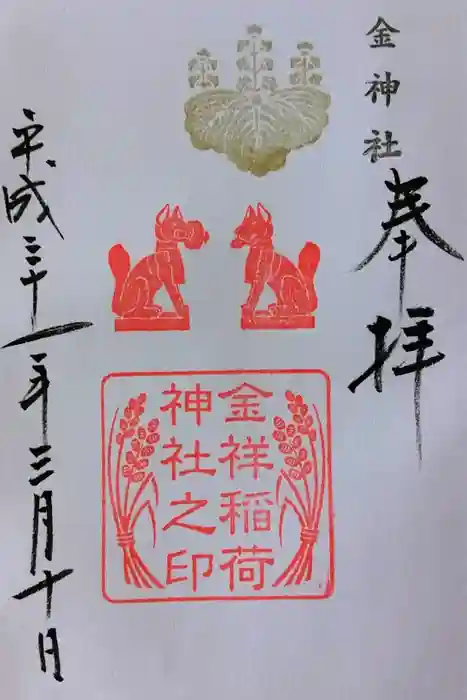 金神社
奉拝
金祥稲荷
神社之印
平成三十一年三月十日